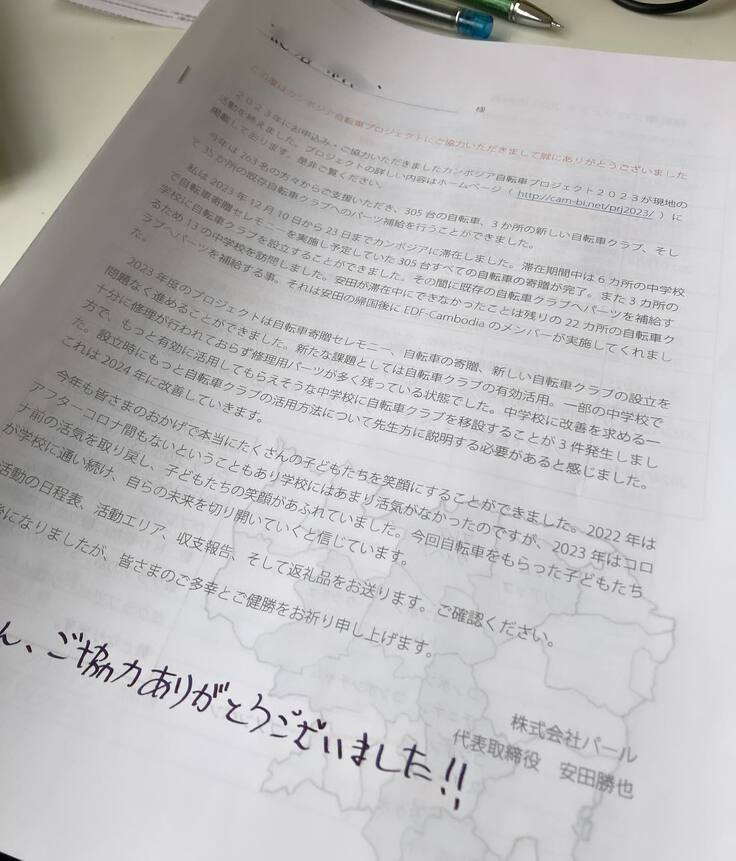 様
この度はカンボジア自転車プロジェクトにご協力いただきまして誠にありがとうございました
2023年にお申込み・ご協力いただきましたカンボジア自転車プロジェクト2023が現地の
活動を終えました。プロジェクトの詳しい内容はホームページ（ http://cam-bi.net/prj2023/ ）に
掲載しております。是非ご覧ください。
今年は263名の方々からご支援いただき、305台の自転車、3か所の新しい自転車クラブ、そし
て35か所の既存自転車クラブへのパーツ補給を行うことができました。
私は2023年12月10日から23日までカンボジアに滞在しました。滞在期間中は6カ所の中学校
で自転車寄贈セレモニーを実施し予定していた305台すべての自転車の寄贈が完了。また3カ所の
学校に自転車クラブを設立することができました。その間に既存の自転車クラブへパーツを補給す
るため13の中学校を訪問しました。安田が滞在中にできなかったことは残りの22カ所の自転車ク
ラブへパーツを補給する事。それは安田の帰国後にEDF-Cambodiaのメンバーが実施してくれまし
た。
2023年度のプロジェクトは自転車寄贈セレモニー、自転車の寄贈、新しい自転車クラブの設立を
問題なく進めることができました。新たな課題としては自転車クラブの有効活用。一部の中学校で
十分に修理が行われておらず修理用パーツが多く残っている状態でした。中学校に改善を求める一
方で、もっと有効に活用してもらえそうな中学校に自転車クラブを移設することが3件発生しまし
た。設立時にもっと自転車クラブの活用方法について先生方に説明する必要があると感じました。
これは2024年に改善していきます。
今年も皆さまのおかげで本当にたくさんの子どもたちを笑顔にすることができました。2022年は
アフターコロナ間もないということもあり学校にはあまり活気がなかったのですが、2023年はコロ
ナ前の活気を取り戻し、子どもたちの笑顔があふれていました。今回自転車をもらった子どもたち
が学校に通い続け、自らの未来を切り開いていくと信じています。
活動の日程表、活動エリア、収支報告、そして返礼品をお送ります。ご確認ください。
後になりましたが、皆さまのご多幸とご健勝をお祈り申し上げます。
ん、ご協力ありがとうございました!!
株式会社パール
代表取締役 安田勝也